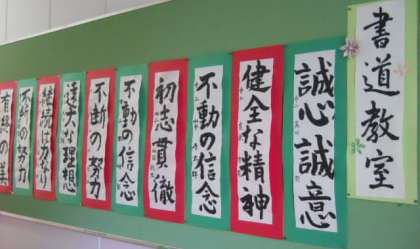 書道教室
誠心誠意
健全な精神
不動の信念
初志貫徹
不動の信念
不断の努力
遠大な理想
継続は力なり
不断の努力
有終の美